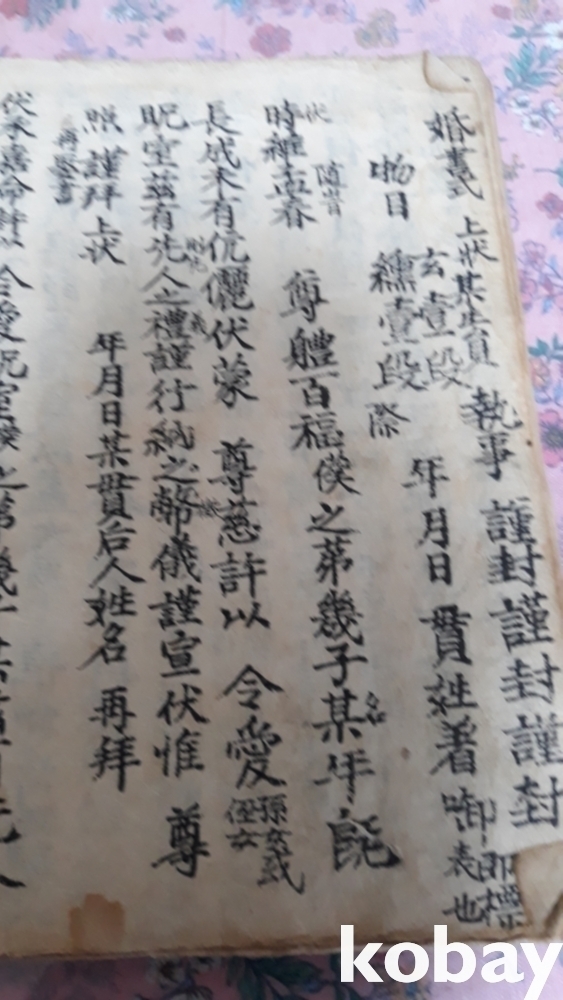 婚書式 上狀某生員 執事 謹封謹封謹封
玄壹段 年月日 貫姓着啣 即標表也
物目 纁壹段 際
伏 時維孟春 隨旹 尊軆百福僕之苐幾子某 名 年旣
長成未有伉儷伏蒙 尊慈許以 令愛 孫女或侄女
眖室茲有先人之禮謹行納之幣儀謹宣伏惟 尊
照 謹拜 上狀 年月日某貫后人姓名 再拜
再娶書
伏承 命許以 令愛 眖室僕之苐幾 先人
kobay